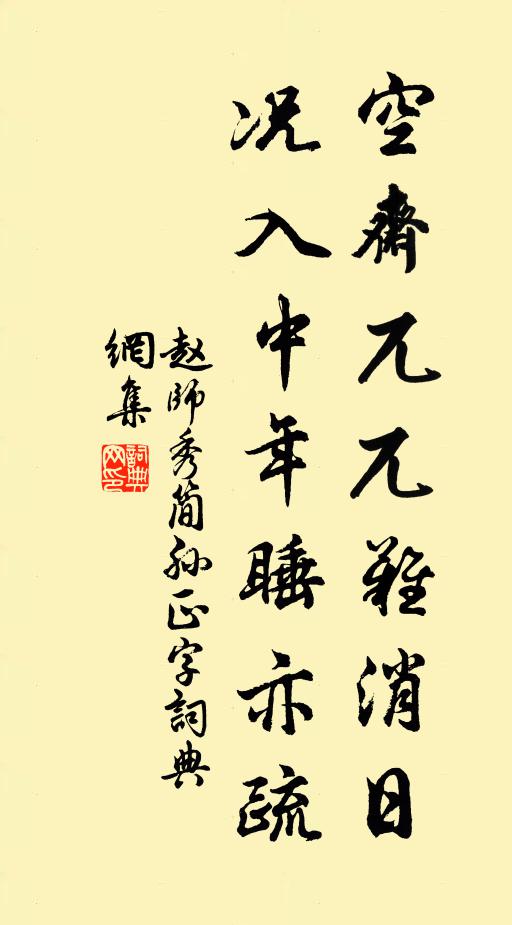 空齋兀兀難消日
况入中年睡亦疏
赵師秀简孙正字詞典
網集
詞典
网印